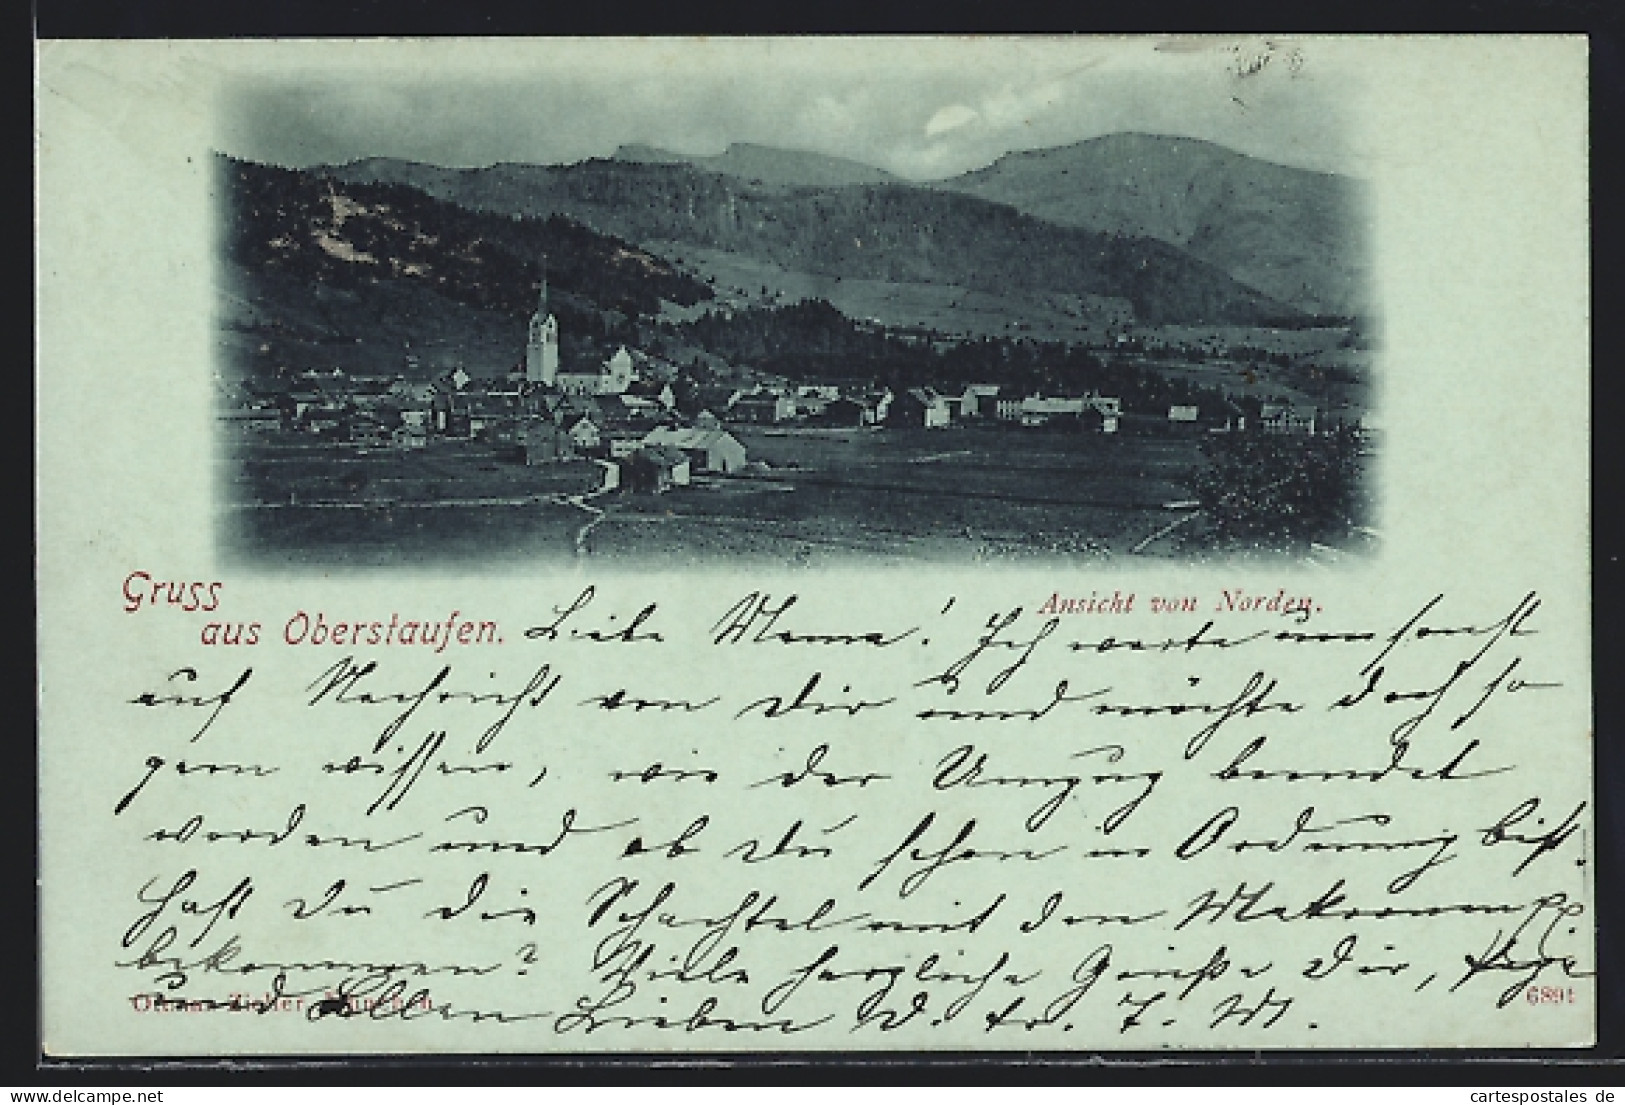 Gruss
aus Oberstaufen.
Ansicht von Norden.
Liebe Mama! Ich warte umsonst
auf Nachricht von Dir und möchte doch so
gern wissen, wie der Umzug beendet
worden und ob Du schon in Ordnung bist.
Hast Du die Schachtel mit den Makronen
bekommen? Viele herzliche Grüße Dir,
und allen Lieben D. tr. T. M.
Ottmar Zieher, München
6891
www.ansichtskartenversand.com
cartespostales de